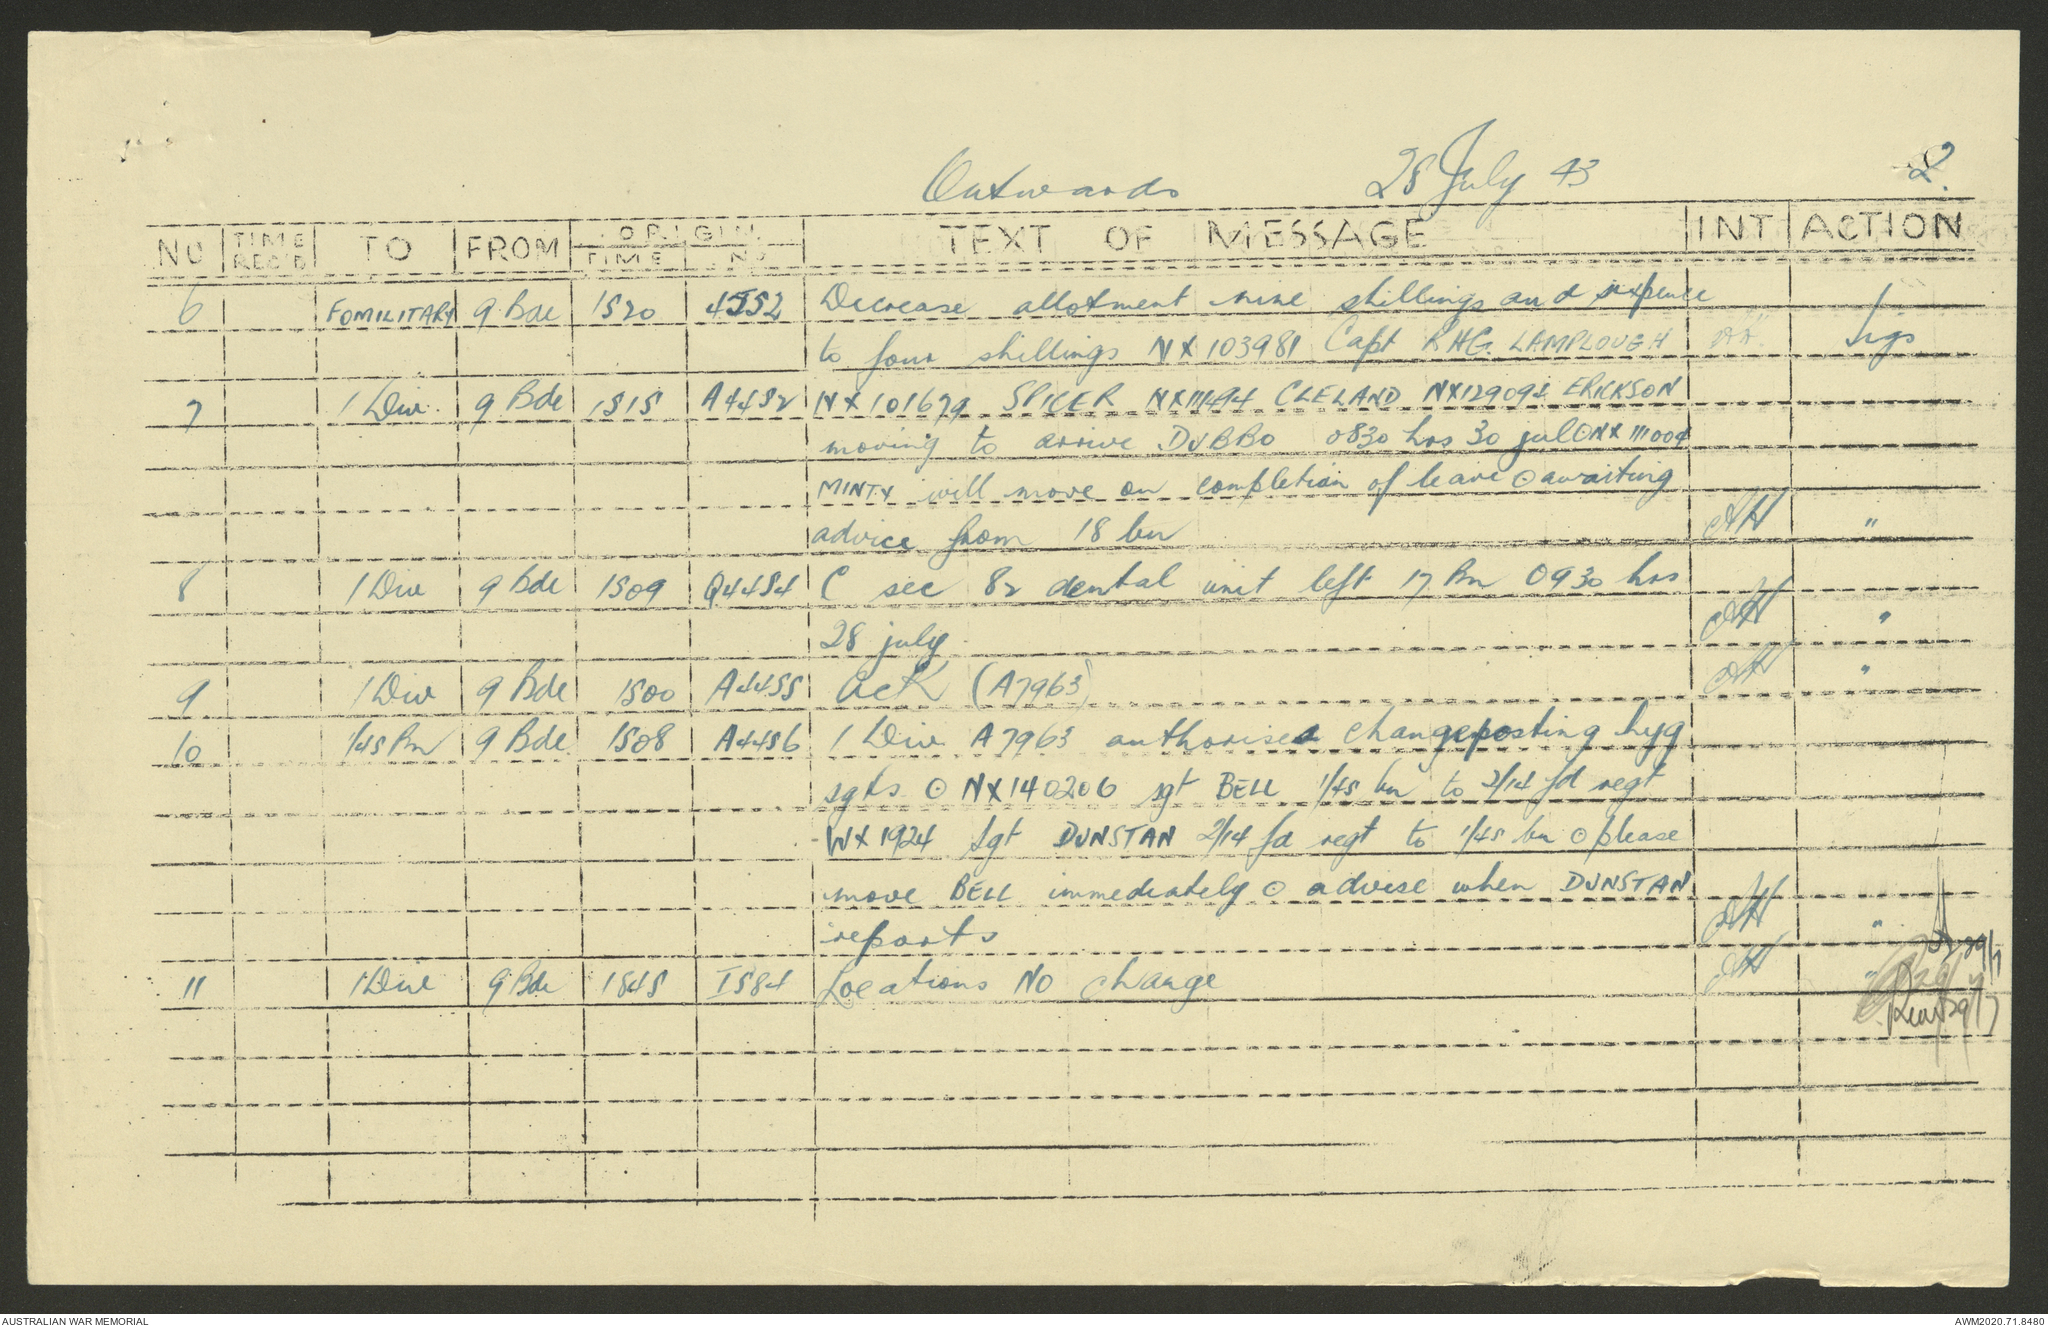 Outwards 28 July 43 2.
NO TIME REC'D TO FROM ORIGIN TIME NO TEXT OF MESSAGE INT ACTION
6 FOMILITARY 9 Bde 1520 Decrease allotment nine shillings and sixpence
to four shillings NX103981 Capt RHG. LAMPLOUGH hgs
7 1 Div. 9 Bde 1515 A4452 NX101679 SPICER NX111494 CLELAND NX129094 ERICKSON
moving to arrive DUBBO 0830 hrs 30 jul ⊙ NX111004
MINTY will move on completion of leave ⊙ awaiting
advice from 18 bn "
8 1 Div 9 Bde 1509 Q4454 C sec 82 dental unit left 17 Bn 0930 hrs
28 july "
9 1 Div 9 Bde 1500 A4455 Ack (A7963) "
10 1/45 Bn 9 Bde 1508 A4456 1 Div A7963 authorises change posting hyg
sgts ⊙ NX140206 sgt BELL 1/45 bn to 2/14 fd regt
WX1924 Sgt DUNSTAN 2/14 fd regt to 1/45 bn ⊙ please
move BELL immediately ⊙ advise when DUNSTAN
reports "
29/7
11 1 Div 9 Bde 1845 I584 Locations NO change "
29/7
AUSTRALIAN WAR MEMORIAL AWM2020.71.8480